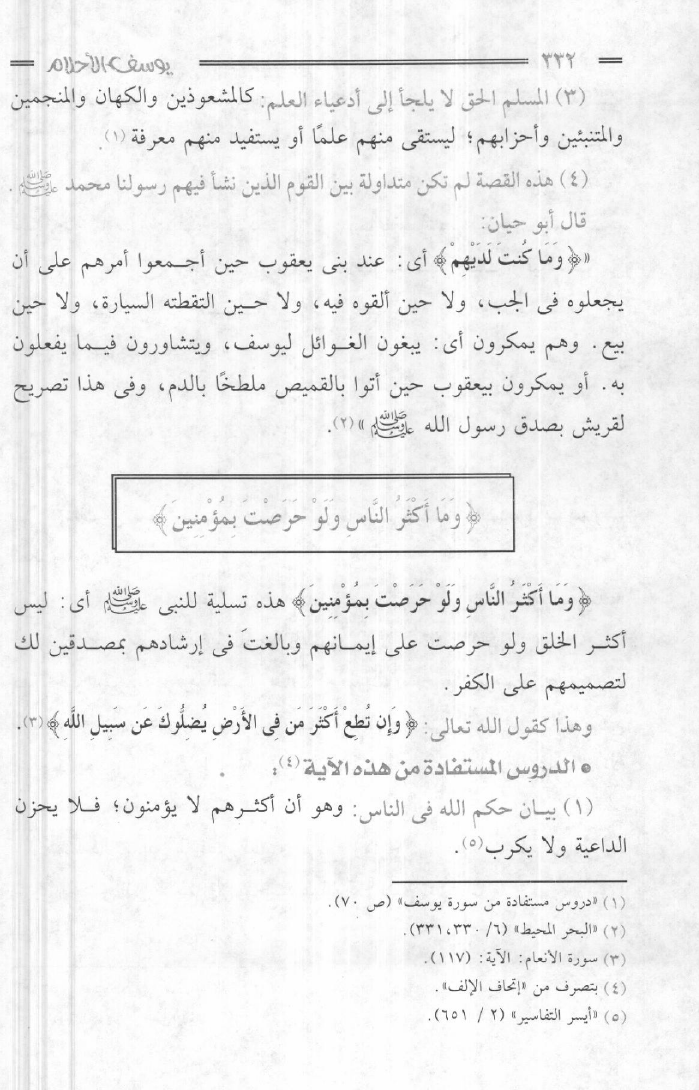 ٣٣٢ يوسف الأحلام
(٣) المسلم الحق لا يلجأ إلى أدعياء العلم: كالمشعوذين والكهان والمنجمين
والمتنبئين وأحزابهم؛ ليستقى منهم علمًا أو يستفيد منهم معرفة (١).
(٤) هذه القصة لم تكن متداولة بين القوم الذين نشأ فيهم رسولنا محمد ﷺ.
قال أبو حيان:
«﴿ وَمَا كُنتَ لَدَيْهِمْ ﴾ أى: عند بنى يعقوب حين أجـمعوا أمرهم على أن
يجعلوه فى الجب، ولا حين ألقوه فيه، ولا حـين التقطته السيارة، ولا حين
بيع. وهم يمكرون أى: يبغون الغـوائل ليوسف، ويتشاورون فيـما يفعلون
به. أو يمكرون بيعقوب حين أتوا بالقميص ملطخًا بالدم، وفى هذا تصريح
لقريش بصدق رسول الله ﷺ »(٢).
﴿ وَمَا أَكْثَرُ النَّاسِ وَلَوْ حَرَصْتَ بِمُؤْمِنِينَ ﴾
﴿ وَمَا أَكْثَرُ النَّاسِ وَلَوْ حَرَصْتَ بِمُؤْمِنِينَ ﴾ هذه تسلية للنبى ﷺ أى: ليس
أكثـر الخلق ولو حرصت على إيمـانهم وبالغتَ فى إرشادهم بمصـدقين لك
لتصميمهم على الكفر.
وهذا كقول الله تعالى: ﴿ وَإِن تُطِعْ أَكْثَرَ مَن فِى الأَرْضِ يُضِلُّوكَ عَن سَبِيلِ اللَّهِ ﴾(٣).
* الدروس المستفادة من هذه الآية (٤):
(١) بيـان حكم الله فى الناس: وهو أن أكثـرهم لا يؤمنون؛ فـلا يحزن
الداعية ولا يكرب(٥).
(١) «دروس مستفادة من سورة يوسف» (ص ٧٠).
(٢) «البحر المحيط» (٦/ ٣٣٠، ٣٣١).
(٣) سورة الأنعام: الآية: (١١٧).
(٤) بتصرف من «إتحاف الإلف».
(٥) «أيسر التفاسير» (٢ / ٦٥١).